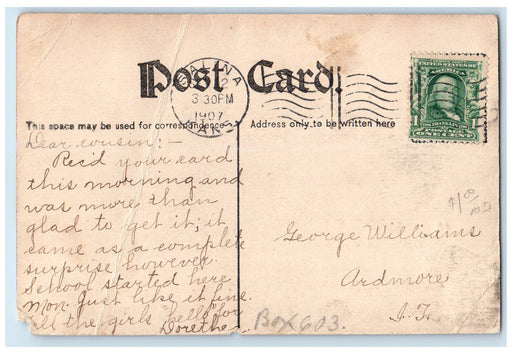 Post Card.
SALINA
2
3 30PM
1907
KANS
UNITED STATES OF
AMERICA
FRANKLIN
1 POSTAGE 1
ONE CENT
This space may be used for correspondence
Address only to be written here
Dear cousin:-
Rec'd your card
this morning and
was more than
glad to get it; it
came as a complete
surprise however.
School started here
Mon. Just like it fine.
all the girls "bells" for
Dorethea
George Williams
Ardmore
I.T.
Box 603.